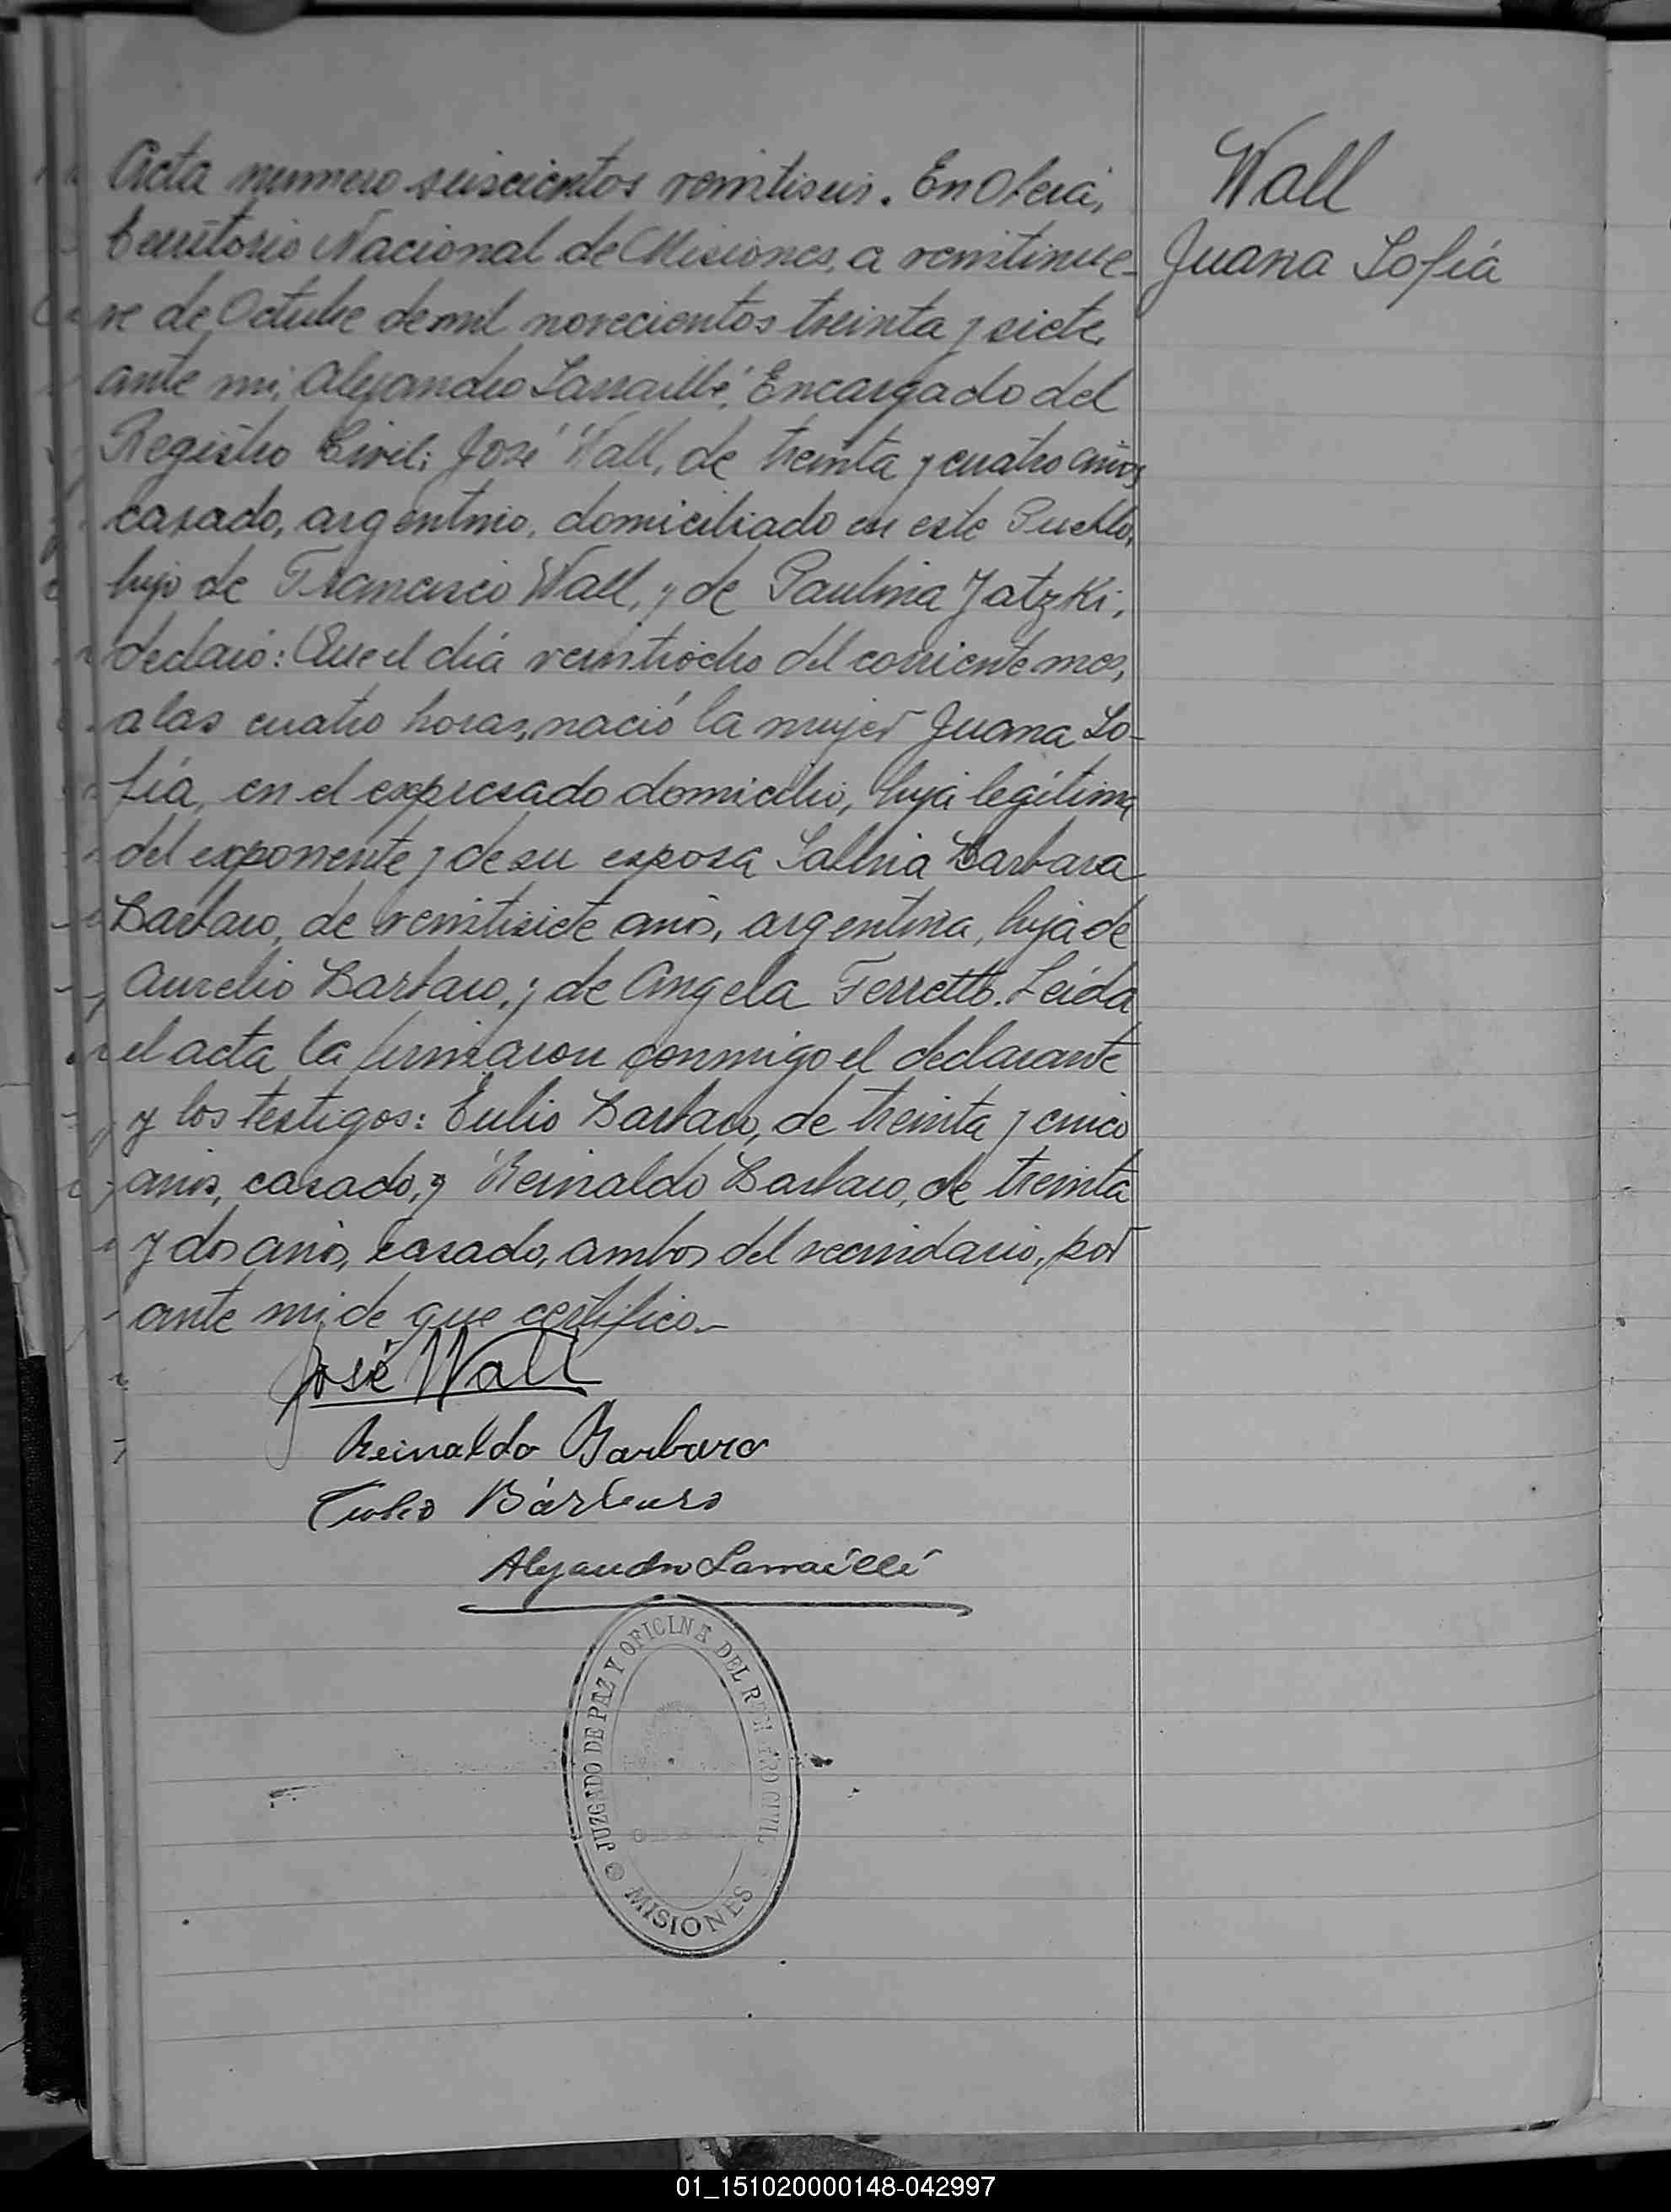 Acta numero seiscientos veintiseis. En Oberá,
Territorio Nacional de Misiones, a veintinue-
ve de Octubre de mil novecientos treinta y siete,
ante mi, Alejandro Larraillé, Encargado del
Registro Civil; José Wall, de treinta y cuatro años,
casado, argentino, domiciliado en este Pueblo,
hijo de Francisco Wall, y de Paulina Jatzki,
declaró: Que el día veintiocho del corriente mes,
a las cuatro horas, nació la mujer Juana So-
fía, en el expresado domicilio, hija legítima
del exponente y de su esposa Barbara
Barbaro, de veintisiete años, argentina, hija de
Aurelio Barbaro, y de Angela Ferretto. Leída
el acta la firmaron conmigo el declarante
y los testigos: Tulio Barbaro, de treinta y cinco
años, casado, y Reinaldo Barbaro, de treinta
y dos años, casado, ambos del vecindario, por
ante mi de que certifico.-
José Wall
Reinaldo Barbaro
Tulio Bárbaro
Alejandro Larraillé
JUZGADO DE PAZ Y OFICINA DEL REGISTRO CIVIL
MISIONES
Wall
Juana Sofía
01_151020000148-042997